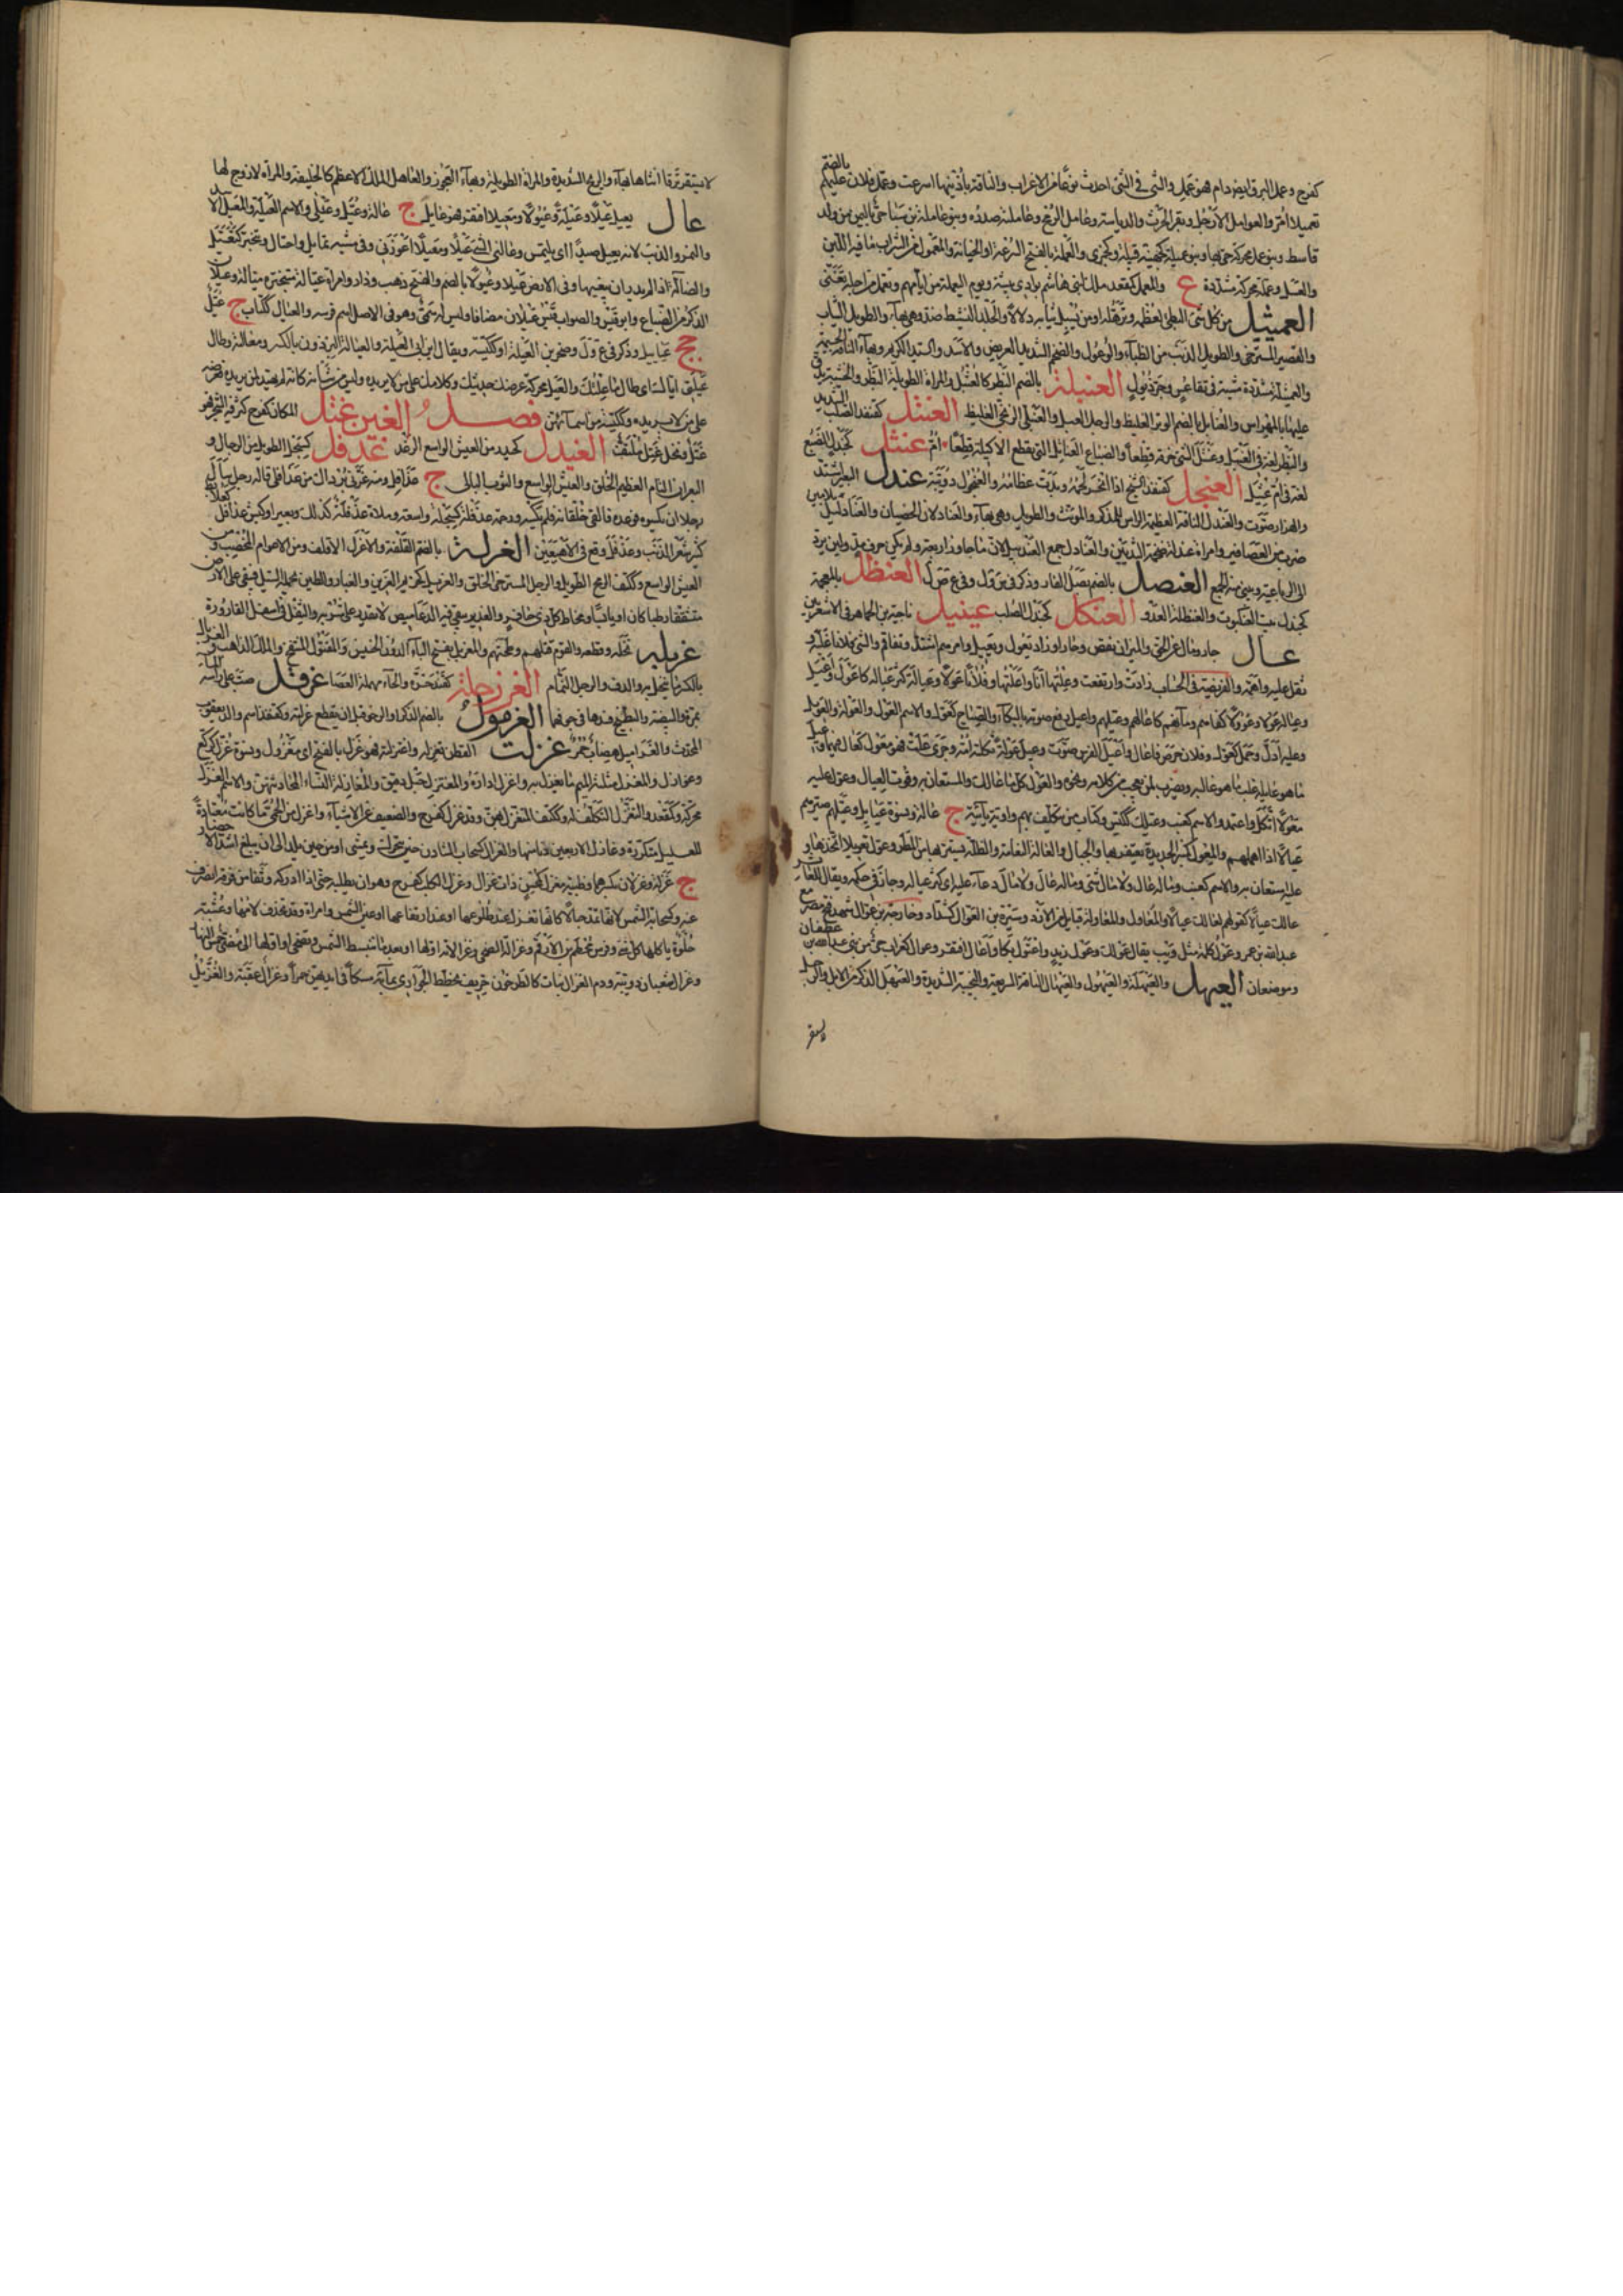 كفرح وعمل البرق ايضا دام فهو عمل والشئ في الشئ احدث نوعا من الاعراب والناقة باذنيها اسرعت وعمل فلان عليهم بالضم
تعميلا امر والعوامل الارجل وبقر الحرث والدياسة وعامل الرمح وعاملته صدره وبنو عاملة بن سبا حى باليمن من ولد
قاسط وبنو عمل محركة حى بها وبنو عميلة كجهينة قبيلة وكجمزى والعملة بالفتح السرقة او الخيانة والمعمول من الشراب ما فيه اللبن
والعسل وعملة محركة مشددة ع والمعمل كمقعد ملك لبنى هاشم بوادى بيشة ويوم اليعملة من ايامهم وتعمل من اجله تعنى
العميثل من كل شئ البطئ لعظمه وترهله ومن يسبل ثيابه دلالا والجلد النشيط ضد وهى بهاء والطويل الثياب
والقصير المسترخى والطويل الذنب من الظباء والوعول والضخم الشديد العريض والاسد والسيد الكريم وبهاء الناقة الجسيمة
والعميثلة مشددة مشية في تقاعس وجر ذيول العنبلة بالضم البظر كالعنبل والمراة الطويلة البظر والخشبة يدق
عليها بالمهراس والعنابل بالضم الوتر الغليظ والرجل العبل والعنبلى الزنجى الغليظ العنتل كقنفذ الصلب الشديد
والبظر لغة في العنبل وعنتل الشئ خرقه قطعا والضباع العناتل التى تقطع الاكيلة قطعا ام عنثل كجندل الضبع
لغة في ام عنثل العنجل كقنفذ الشيخ اذا انحسر لحمه وبدت عظامه والعنجول دويبة عندل البعير اشتد
والهزار صوت والعندل الناقة العظيمة الراس للمذكر والمونث والطويل وهى بهاء والعنادلان الخصيان والعندليل
ضرب من العصافير وامراة عندلة ضخمة الثديين والعنادل جمع العندليب لان ما جاوز اربعة ولم يكن حرف مد ولين يرد
الى الرباعى ويبنى منه الجمع العنصل بالضم بصل الفار وذكر في ب ق ل وفي ع ص ل العنظل بالمعجمة
كجندل بيت العنكبوت والعنظلة العدو العنكل كجندل الصلب عينيل ناحية بن الجماهر في الاشعريين
عال جار ومال عن الحق والميزان نقص وجار او زاد يعول ويعيل وامرهم اشتد وتفاقم والشئ فلانا غلبه و
ثقل عليه واهمه والفريضة في الحساب زادت وارتفعت وعلتها انا واعلتها وفلان عولا وعيالة كثر عياله كاعول واعيل
وعياله عولا وعوولا كفاهم ومانهم كاعالهم وعيلهم واعول رفع صوته بالبكاء والصياح كعول والاسم العول والعولة والعويل
وعليه ادل وحمل كعول وفلان حرص كاعال واعيل القوس صوتت وعيل عوله ثكلته امه وعيل
ما هو عايله غلب ما هو غالبه ويضرب لمن يعجب من كلامه ونحوه والعول كل ما عالك والمستعان به وقوت العيال وعول عليه
معولا اتكل واعتمد والاسم كعنب وعيلك ككيس وككتاب من تتكفل بهم واوية يائية ج عالة ونسوة عيايل وعيلهم صيرهم
عيالا او اهملهم والمعول كمنبر الحديدة ينقر بها الجبال والعالة النعامة والظلة يستتر بها من المطر وعول تعويلا اتخذها و
عليه استعان به والاسم كعنب وما له عال ولا مال شئ وما له عال ولا مال دعاء عليه اى كثر عياله وجار في حكمه ويقال للعاثر
عالك عاليا كقولهم لعا لك عاليا والمعاول والمعاولة قبايل من الازد وسبرة بن العوال كشداد وخارجة بن عوال شهد فتح مصر مع
عبد الله بن عمرو عول كلمة مثل ويب يقال عولك وعول زيد واعتول بكا واعال افتقر وعوال كغراب حى من بنى عبد الله بن غطفان
وموضعان العيهل والعيهلة والعيهول والعيهال الناقة السريعة والنجيبة الشديدة والعيهل الذكر من الابل والرجل
لا يستقر نزقا انثاهما بهاء والريح الشديدة والمراة الطويلة وبهاء العجوز والعاهل الملك الاعظم كالخليفة والمراة لا زوج لها
عال يعيل عيلا وعيلة وعيولا ومعيلا افتقر فهو عايل ج عالة وعيل وعيلى والاسم العيلة والمعيل الاسد
والنمر والذئب لانه يعيل صيدا اى يلتمس وعالنى الشئ عيلا ومعيلا اعوزنى وفي مشيه تمايل واختال وتبختر كتعيل
والضالة اذا لم يدر اين يبغيها وفي الارض عيلا وعيولا بالضم والفتح ذهب ودار وامراة عيالة متبختره ميالة وعيلان
الذكر من الضباع وابو قيس والصواب قيس عيلان مضافا وليس له سمى وهو في الاصل اسم فرسه والعيال ككتاب ج عيل
جج عياييل وذكر في ع و ل وصخر بن العيلة او ككيسة ويقال ابن ابى العيلة والعيالة البرذون بالكسر ومعالة وطال
عيلتى اياك اى طال ما علتك والعيل محركة عرضك حديثك وكلامك على من لا يريده وليس من شانه كانه لم يهتد لمن يريده فعرضه
على من لا يريده وككيسة من اسمائهن فصل الغين غتل المكان كفرح كثر فيه الشجر فهو
غتل ونخل غتل ملتف الغيدل كحيدر من العيش الواسع الرغد غدفل كسبحل الطويل من الرجال و
البعران التام العظيم الخلق والعيش الواسع والثوب البالى ج غدافل ومنه غرنى برداك من غدافلى قاله رجل سال
رجلا ان يكسوه فوعده فالقى خلقانه فلم يكسه ورحمة غدفلة كسبحلة واسعة وملاءة غدفلة كذلك وبعير او كبش غدافل كعلابط
كثير شعر الذنب وغدفل وقع في الاهيغين الغرلة بالضم القلفة والاغرل الاقلف ومن الاعوام المخصب ومن
العيش الواسع وككتف الرمح الطويل والرجل المسترخى الخلق والغريل كحذيم الغرين والغبار والطين يحمله السيل فيبقى على الارض
متشققا رطبا كان او يابسا ومخاط كل ذى حافر والغدير يبقى فيه الدعاميص لا يقدر على شربه والثفل في اسفل القارورة
غربله نخله وقطعه والقوم قتلهم وطحنهم والمغربل بفتح الباء الدون الخسيس والمقتول المنتفخ والملك الذاهب والغربال
بالكسر ما ينخل به والدف والرجل النمام الغرزحلة كقنذحرة والحاء مهملة العصا غرقل صب على راسه الماء
بمرة والبيضة والبطيخ فسد ما في جوفهما الغرمول بالضم الذكر او الرخو قبل ان يقطع غرلته وكقنفذ اسم والد يعقوب
المحدث والغراميل هضاب حمر غزلت القطن تغزله واغتزلته فهو غزل بالفتح اى مغزول ونسوة غزل كركع
وغوازل والمغزل مثلثة الميم ما يغزل به واغزل اداره والمغيزل حبل دقيق والمغازلة النساء محادثتهن والاسم الغزل
محركة وكمقعد والتغزل التكلف له وككتف المتغزل بهن وقد غزل كفرح والضعيف عن الاشياء واغزل من الحمى لانها كانت معتادة
للعليل متكررة وغازل الاربعين دنا منها والغزال كسحاب الشادن حين يتحرك ويمشى او من حين يولد الى ان يبلغ اشد الاحضار
ج غزلة وغزلان بكسرهما وظبية مغزل كمحسن ذات غزال وغزل الكلب كفرح وهو ان يطلبه حتى اذا ادركه وثغا من فرقه انصرف
عنه وكسحابة الشمس لانها تمد حبالا كانها تغزل او عند طلوعها او عند ارتفاعها او عين الشمس وامراة وقد تحذف لامها وعشبة
حلوة ياكلها كل شئ وفرس محطم بن الارقم وغزالة الضحى وغزالاته اولها او بعد ما تنبسط الشمس وتضحى او اولها الى مضى خمس النهار
وغزال شعبان دويبة ودم الغزال نبات كالطرخون حريف يخطط الجوارى بمائه مسكا في ايديهن حمرا وغزال عقبة والغزيل
لا يستقر